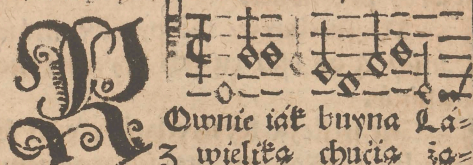 ROwnie iák buyna Lá⸗
z wieliką chućią żą⸗